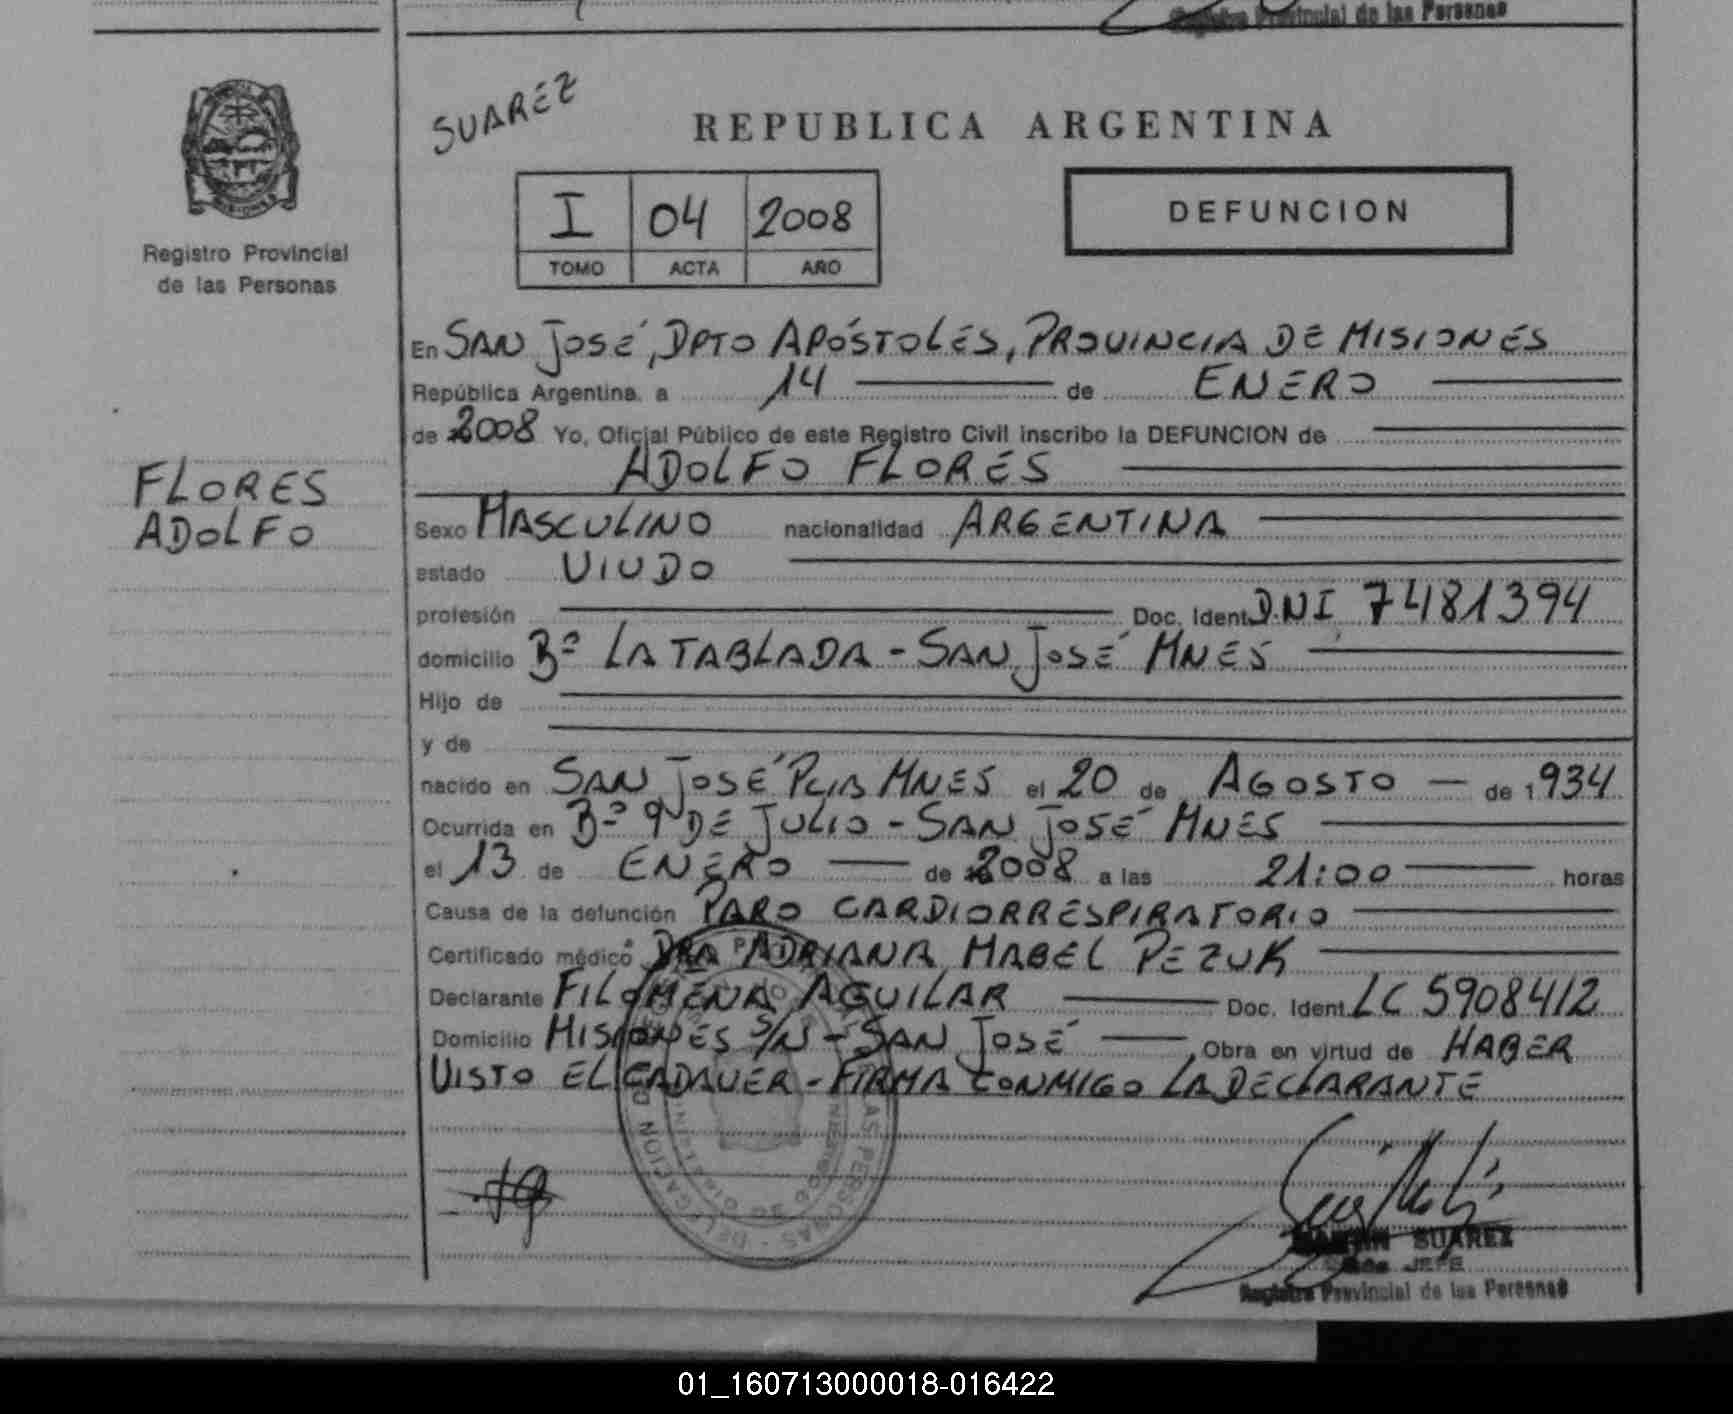 Registro Provincial de las Personas
SUAREZ
REPUBLICA ARGENTINA
I 04 2008
TOMO ACTA AÑO
DEFUNCION
MISIONES
Registro Provincial
de las Personas
FLORES
ADOLFO
En SAN JOSÉ, DPTO APÓSTOLES, PROVINCIA DE MISIONES
República Argentina, a 14 de ENERO
de 2008 Yo, Oficial Público de este Registro Civil inscribo la DEFUNCION de
ADOLFO FLORES
Sexo MASCULINO nacionalidad ARGENTINA
estado VIUDO
profesión Doc. Ident. DNI 7481394
domicilio Bº LA TABLADA - SAN JOSÉ MNES
Hijo de
y de
nacido en SAN JOSÉ PCIA MNES el 20 de AGOSTO de 1934
Ocurrida en Bº 9 DE JULIO - SAN JOSÉ MNES
el 13 de ENERO de 2008 a las 21:00 horas
Causa de la defunción PARO CARDIORRESPIRATORIO
Certificado médico DRA ADRIANA MABEL PEZUK
Declarante FILOMENA AGUILAR Doc. Ident. LC 5908412
Domicilio MISIONES S/N - SAN JOSÉ, Obra en virtud de HABER
VISTO EL CADAVER - FIRMA CONMIGO LA DECLARANTE
DELEGACION
AS PERSONAS
SUAREZ
JEFE
Registro Provincial de las Personas
01_160713000018-016422